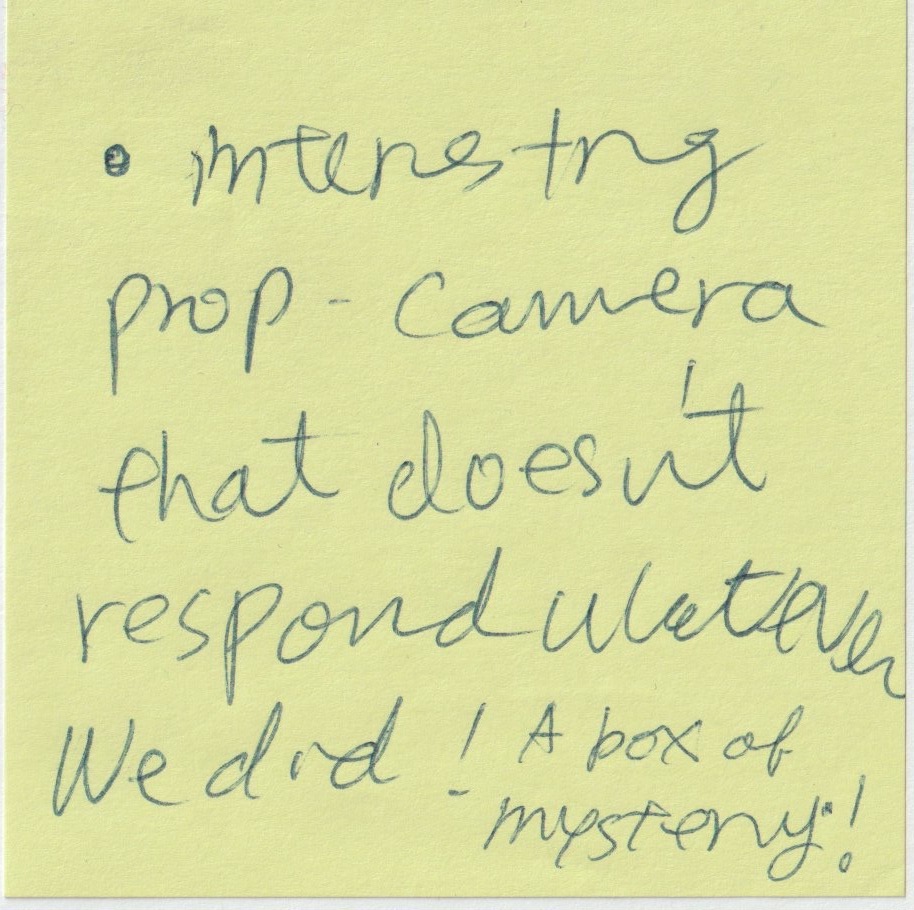 • interesting
prop - camera
that doesn't
respond whatever
We did! A box of
mystery!